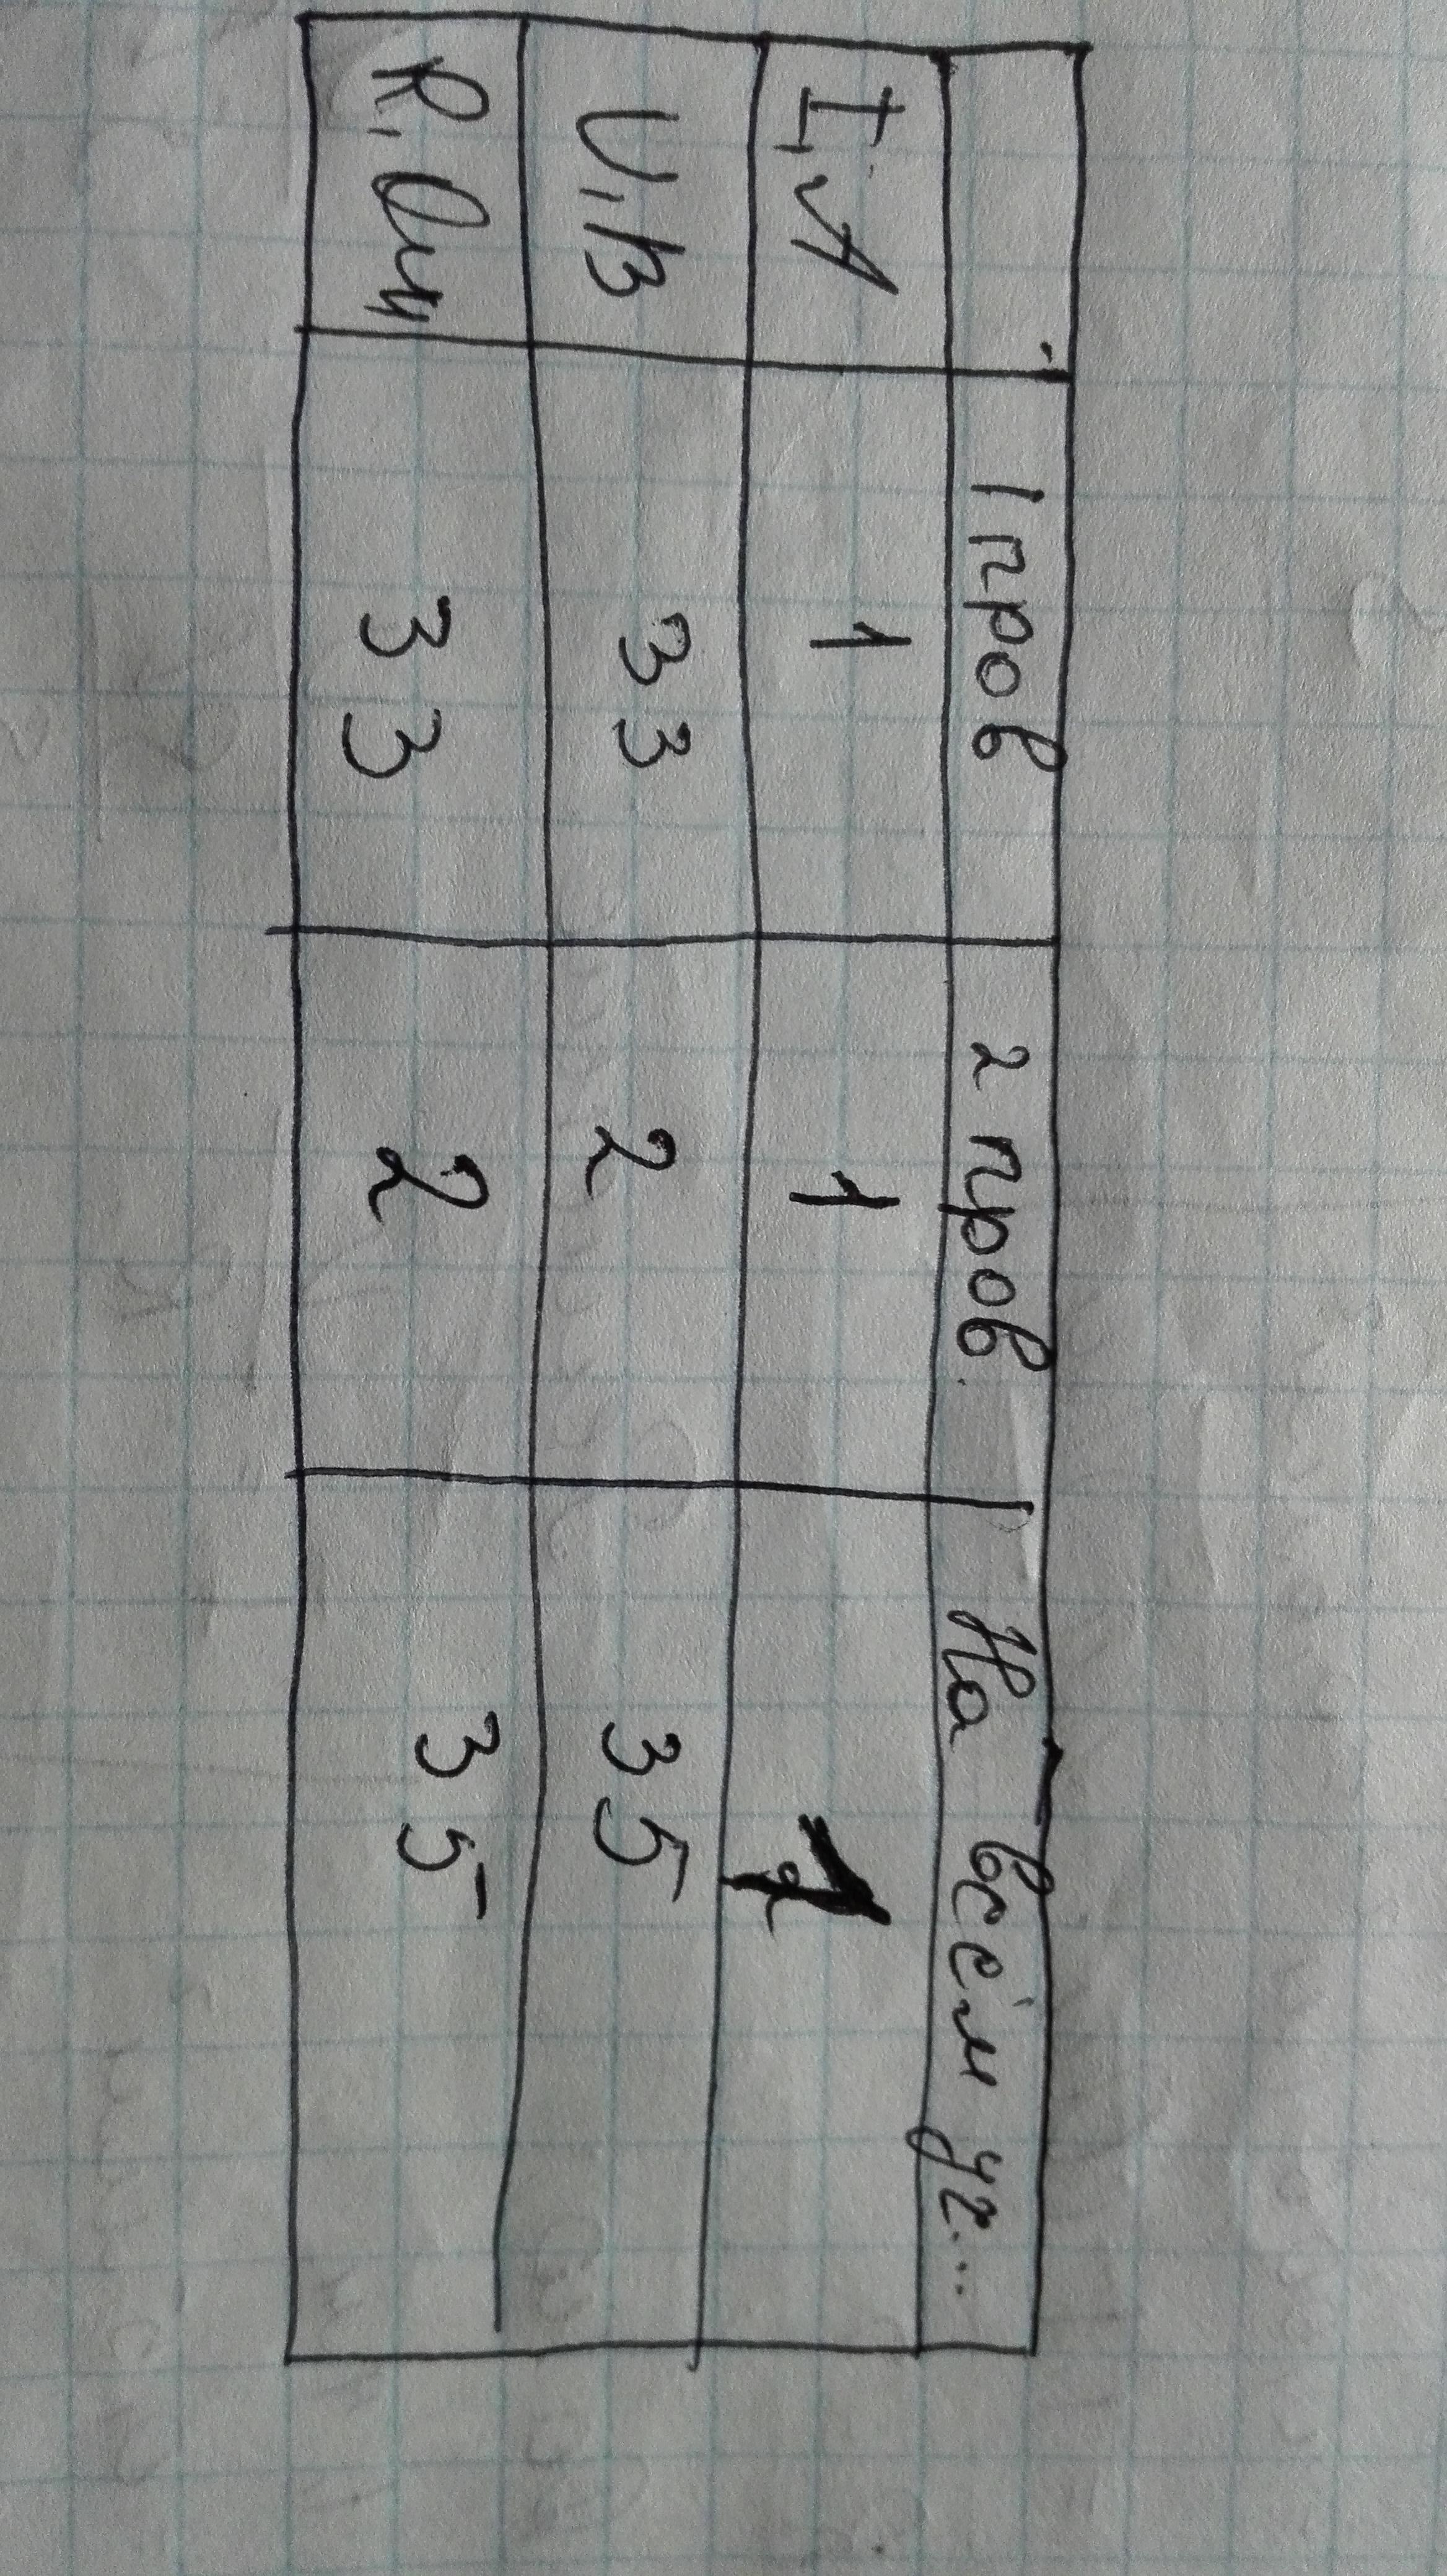 1 пров 2 пров. На всём уч...
I, А 1 1 1
U, В 33 2 35
R, Ом 33 2 35